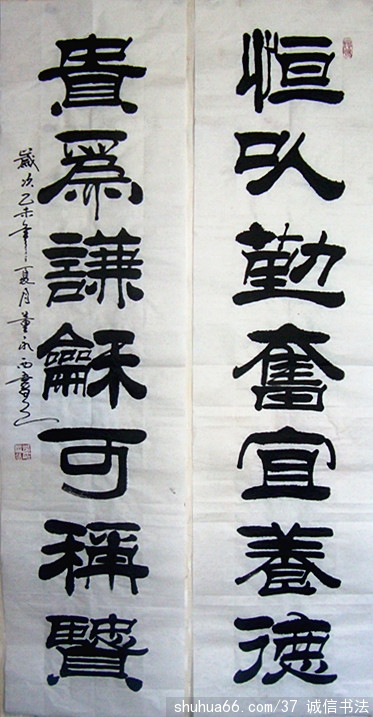 恒以勤奮宜養德
貴爲謙龢可稱贒
歲次乙未年夏月董永西書
shuhua66.com/37 诚信书法